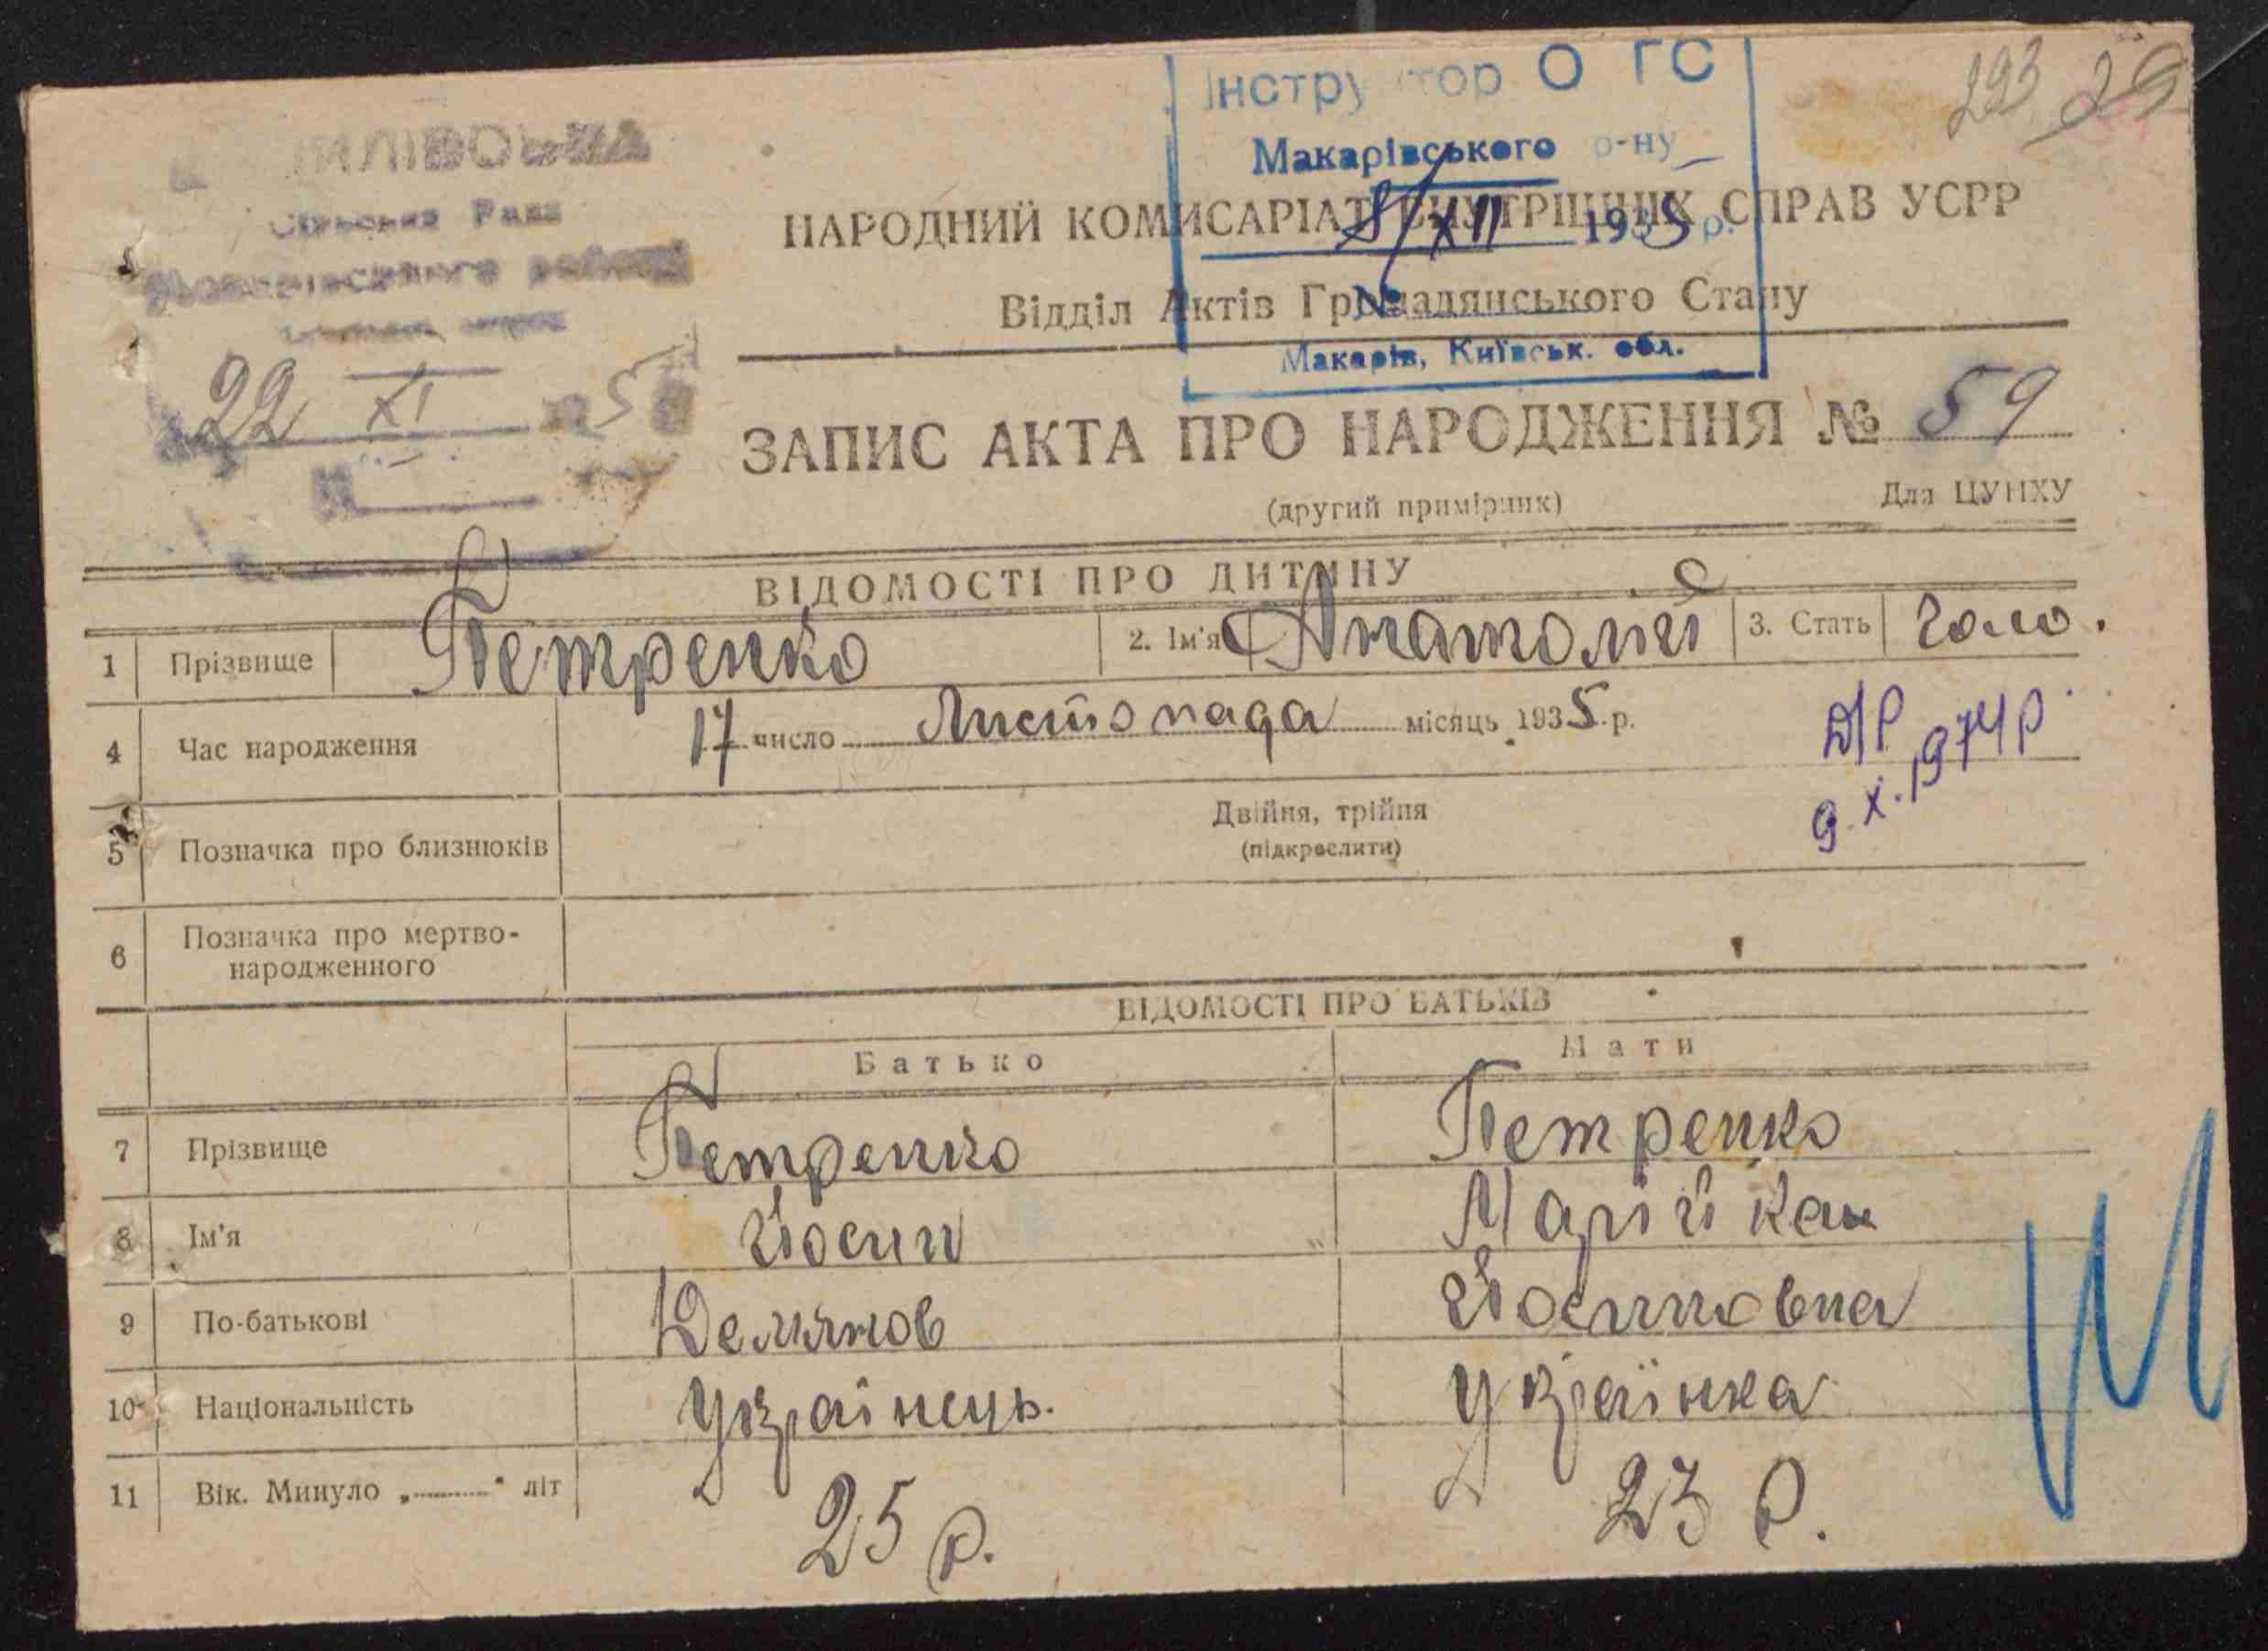 293 29
Інструктор О ГС
Макарівського р-ну
8/XII 1935 р.
№
Макарів, Київськ. обл.
Сільська Рада
Макарівського району
22 XI 5
НАРОДНИЙ КОМИСАРІАТ ВНУТРІШНІХ СПРАВ УСРР
Відділ Актів Громадянського Стану
ЗАПИС АКТА ПРО НАРОДЖЕННЯ № 59
(другий примірник) Для ЦУНХУ
ВІДОМОСТІ ПРО ДИТИНУ
1 Прізвище Петренко 2. Ім'я Анатолій 3. Стать Чоло.
4 Час народження 17 число Листопада місяць 1935 р.
Д/Р
9.X.1974р.
5 Позначка про близнюків Двійня, трійня
(підкреслити)
6 Позначка про мертво-
народженного
ВІДОМОСТІ ПРО БАТЬКІВ
Батько Мати
7 Прізвище Петренко Петренко
8 Ім'я Йосип Марійка
9 По-батькові Демянов Йосиповна
10 Національність Українець. Українка
11 Вік. Минуло „............" літ 25 р. 23 р.